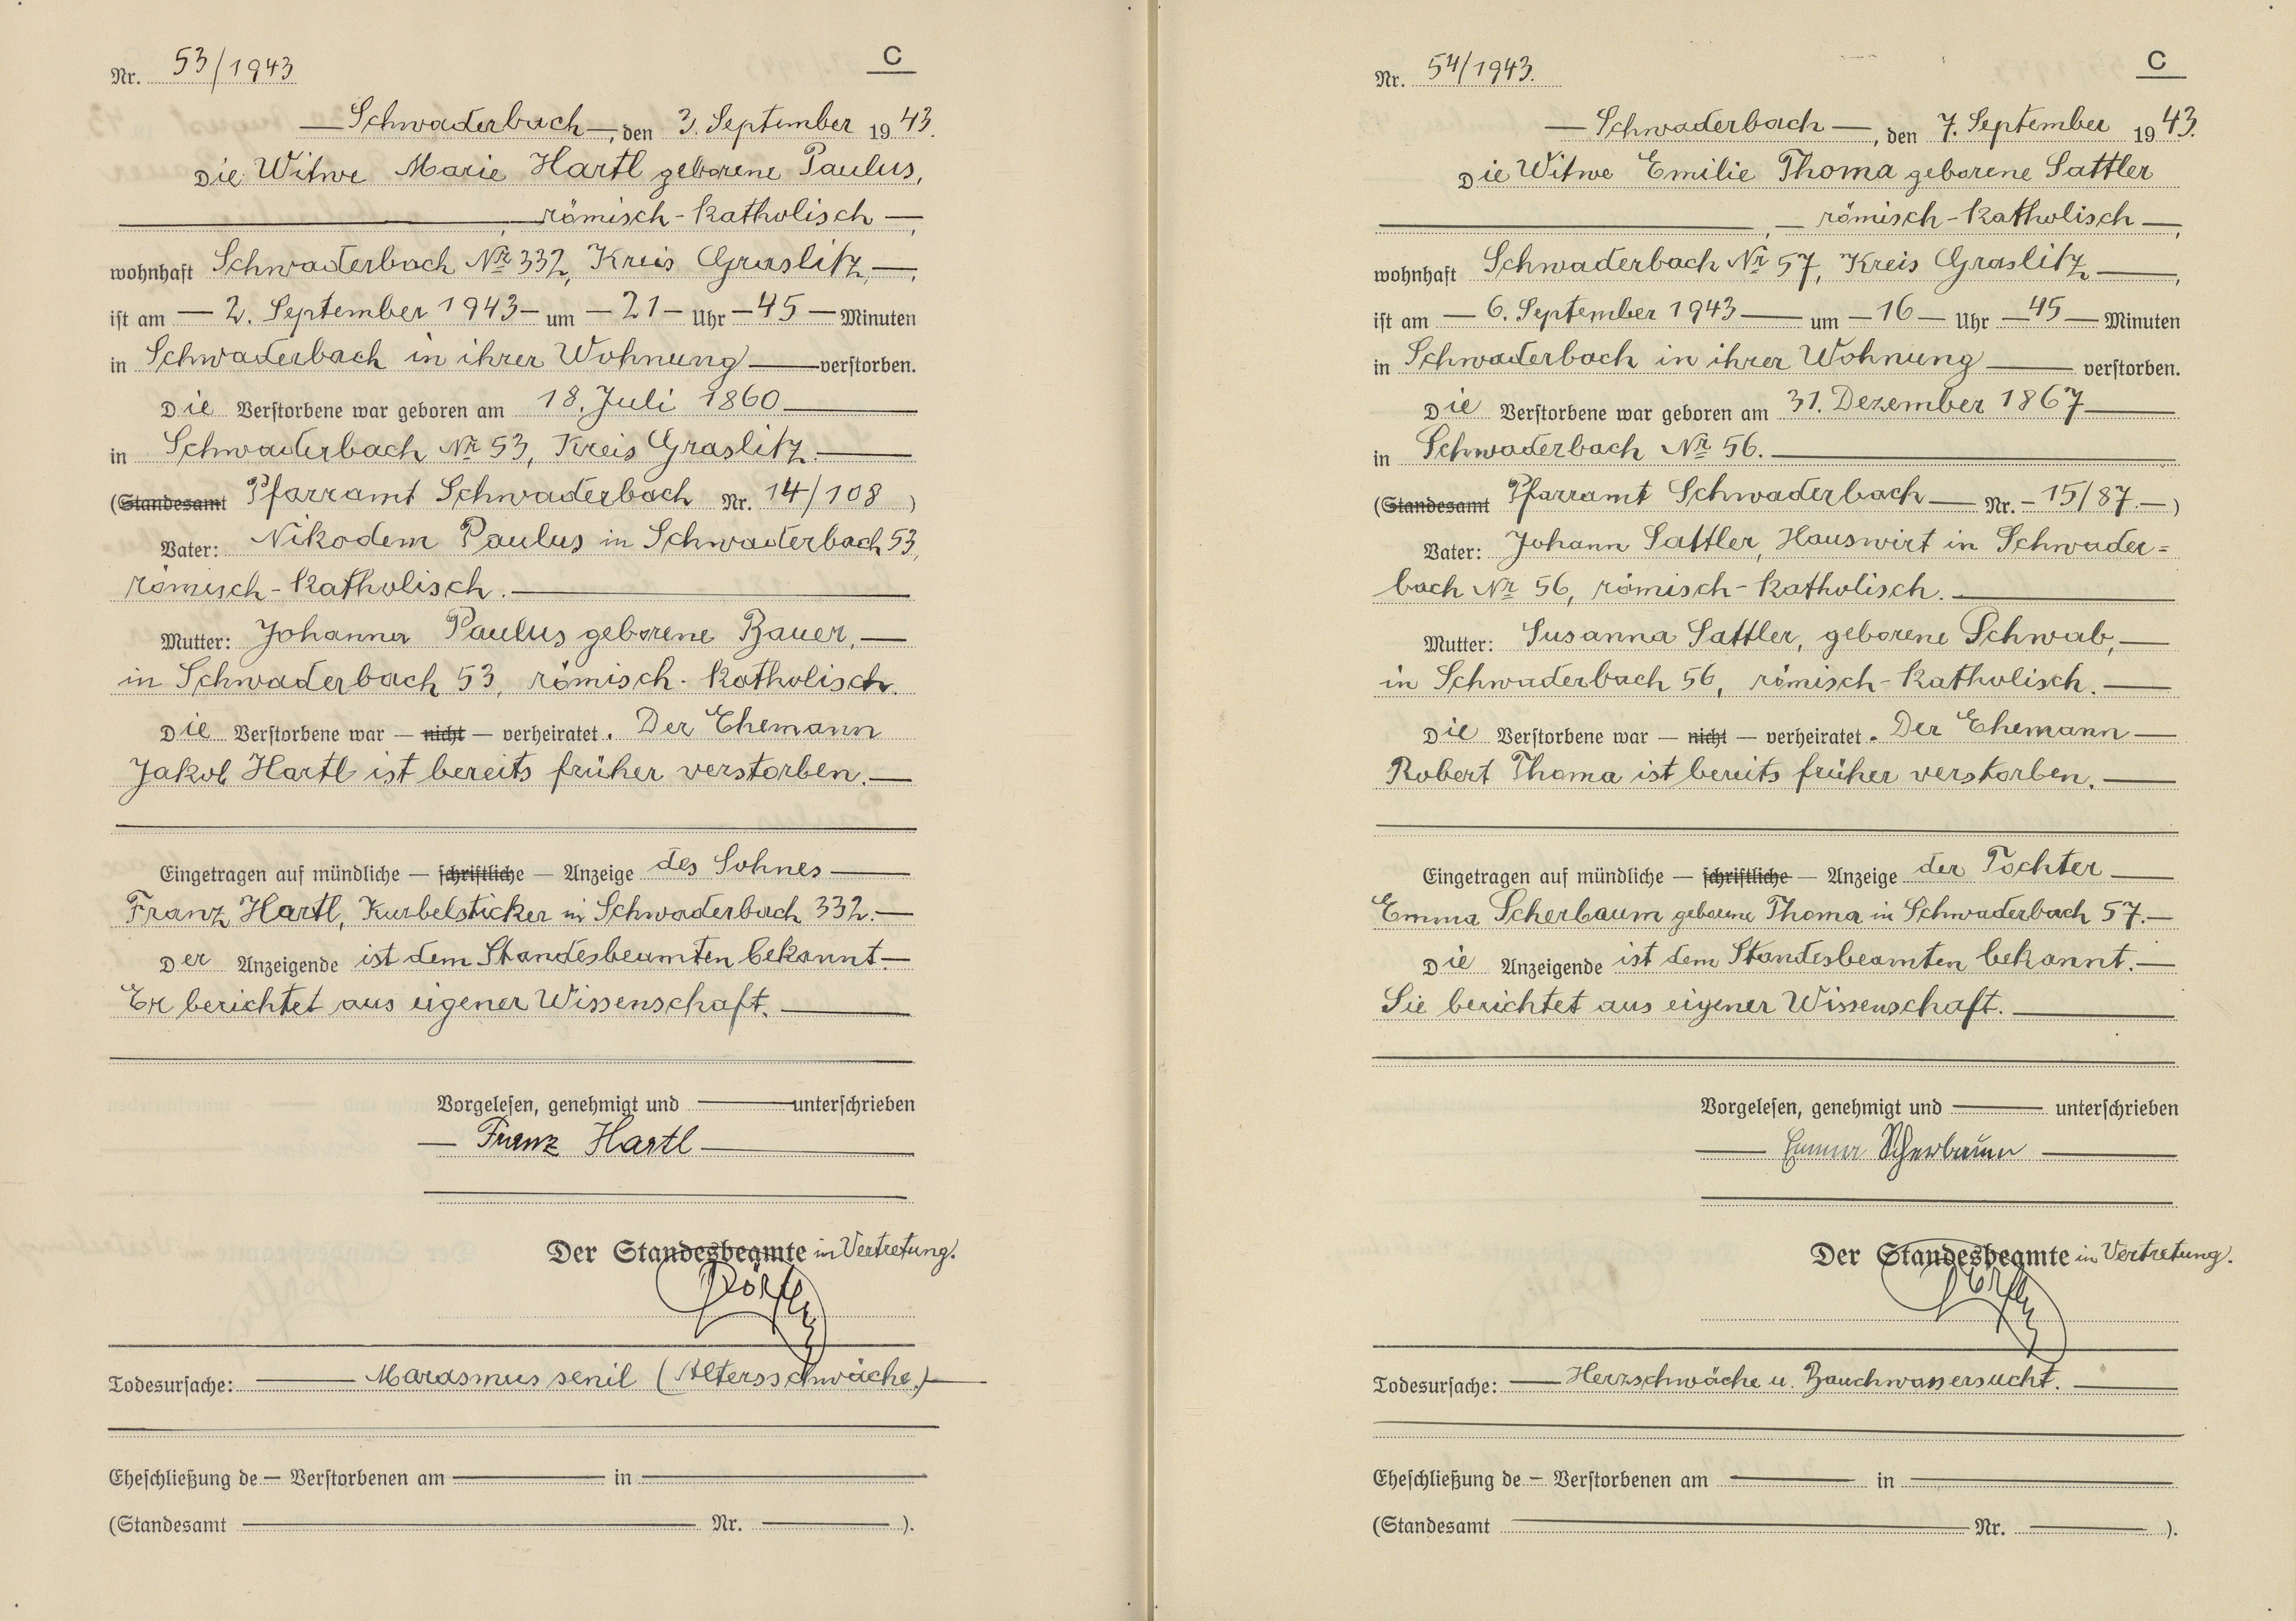 C
Nr. 53/1943
Schwaderbach, den 3. September 1943.
Die Witwe Marie Hartl geborene Paulus,
römisch-katholisch
wohnhaft Schwaderbach Nr 332, Kreis Graslitz,
ist am 2. September 1943 um 21 Uhr 45 Minuten
in Schwaderbach in ihrer Wohnung verstorben.
Die Verstorbene war geboren am 18. Juli 1860
in Schwaderbach Nr 53, Kreis Graslitz.
(Standesamt Pfarramt Schwaderbach Nr. 14/108)
Vater: Nikodem Paulus in Schwaderbach 53,
römisch-katholisch.
Mutter: Johanna Paulus geborene Bauer,
in Schwaderbach 53, römisch-katholisch.
Die Verstorbene war — nicht — verheiratet. Der Ehemann
Jakob Hartl ist bereits früher verstorben.
Eingetragen auf mündliche — schriftliche — Anzeige des Sohnes
Franz Hartl, Kurbelsticker in Schwaderbach 332.
Der Anzeigende ist dem Standesbeamten bekannt.
Er berichtet aus eigener Wissenschaft.
Vorgelesen, genehmigt und unterschrieben
Franz Hartl
Der Standesbeamte in Vertretung.
Todesursache: Marasmus senil (Altersschwäche.)
Eheschließung de — Verstorbenen am — in
(Standesamt — Nr. — ).
C
Nr. 54/1943.
Schwaderbach, den 7. September 1943.
Die Witwe Emilie Thoma geborene Sattler
römisch-katholisch,
wohnhaft Schwaderbach Nr 57, Kreis Graslitz,
ist am 6. September 1943 um 16 Uhr 45 Minuten
in Schwaderbach in ihrer Wohnung verstorben.
Die Verstorbene war geboren am 31. Dezember 1867
in Schwaderbach Nr 56.
(Standesamt Pfarramt Schwaderbach Nr. 15/87.)
Vater: Johann Sattler, Hauswirt in Schwader=
bach Nr 56, römisch-katholisch.
Mutter: Susanna Sattler, geborene Schwab,
in Schwaderbach 56, römisch-katholisch.
Die Verstorbene war — nicht — verheiratet. Der Ehemann
Robert Thoma ist bereits früher verstorben.
Eingetragen auf mündliche — schriftliche — Anzeige der Tochter
Emma Scherbaum geborene Thoma in Schwaderbach 57.
Die Anzeigende ist dem Standesbeamten bekannt.
Sie berichtet aus eigener Wissenschaft.
Vorgelesen, genehmigt und unterschrieben
Emma Scherbaum
Der Standesbeamte in Vertretung.
Todesursache: Herzschwäche u. Bauchwassersucht.
Eheschließung de — Verstorbenen am — in
(Standesamt — Nr. — ).